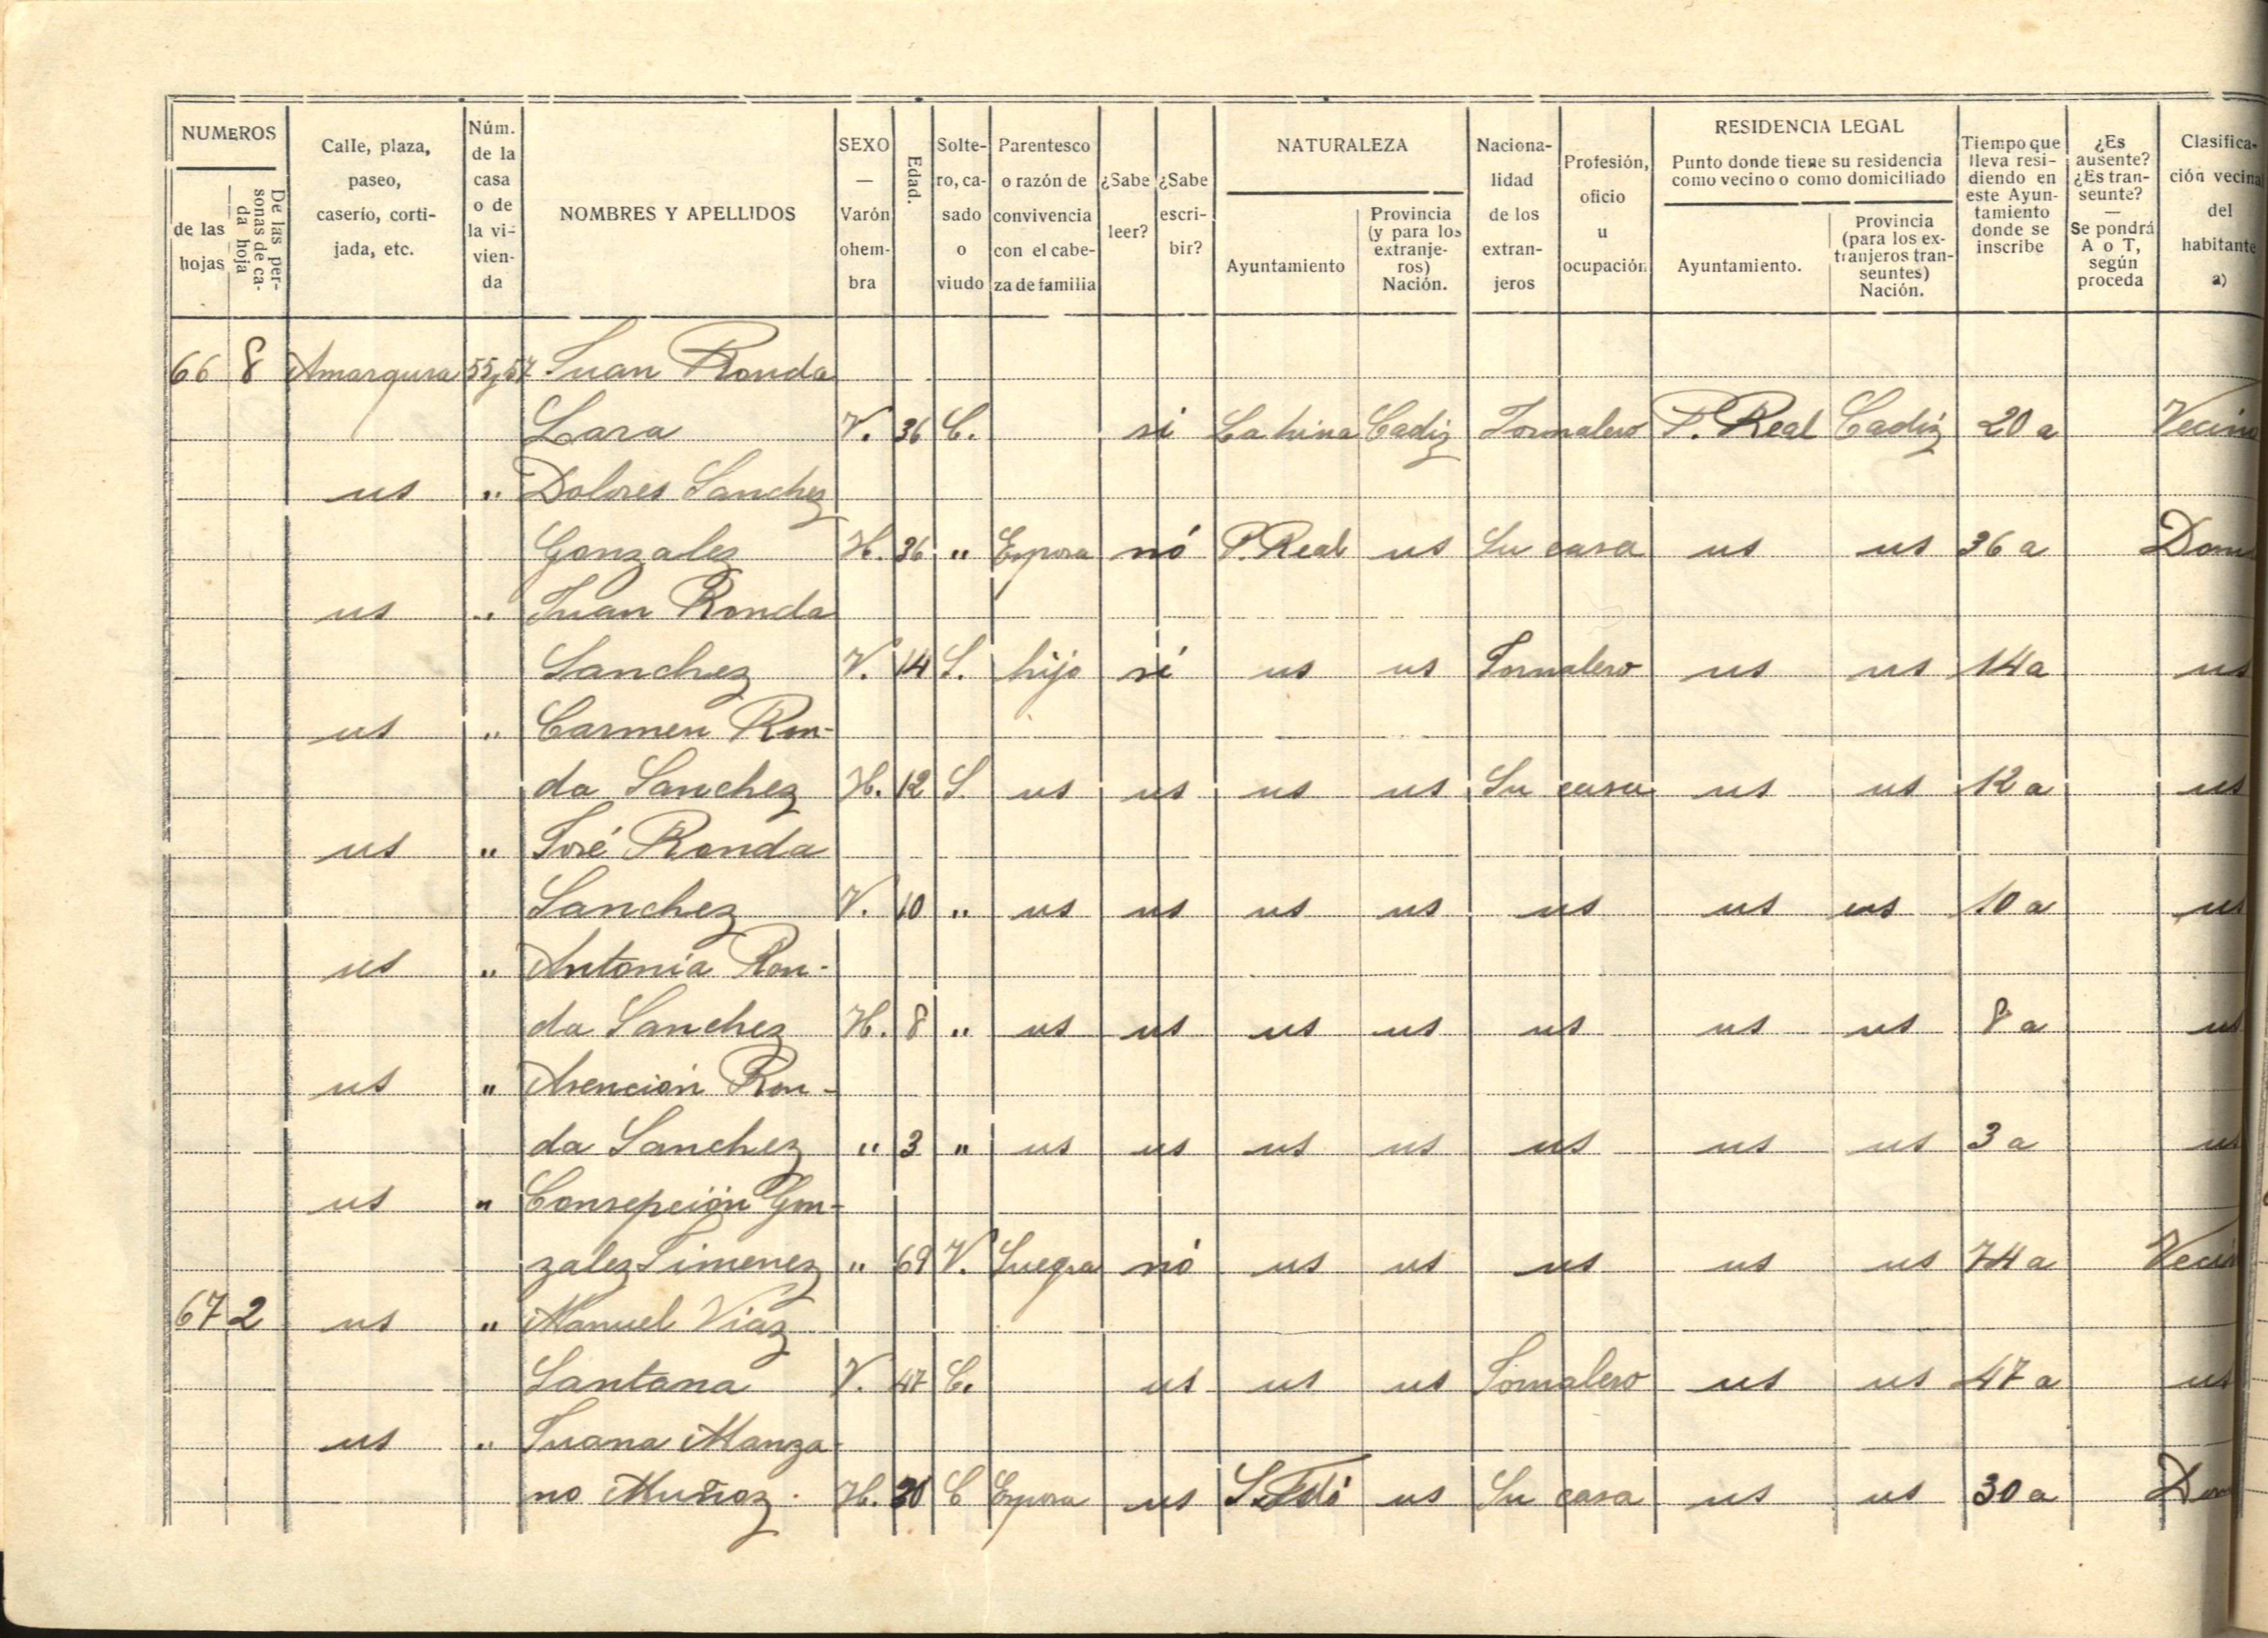 NUMEROS
de las hojas
De las personas de cada hoja
Calle, plaza, paseo, caserío, cortijada, etc.
Núm. de la casa o de la vivienda
NOMBRES Y APELLIDOS
SEXO — Varón o hembra
Edad.
Soltero, casado o viudo
Parentesco o razón de convivencia con el cabeza de familia
¿Sabe leer?
¿Sabe escribir?
NATURALEZA
Ayuntamiento
Provincia (y para los extranjeros) Nación.
Nacionalidad de los extranjeros
Profesión, oficio u ocupación
RESIDENCIA LEGAL
Punto donde tiene su residencia como vecino o como domiciliado
Ayuntamiento.
Provincia (para los extranjeros transeuntes) Nación.
Tiempo que lleva residiendo en este Ayuntamiento donde se inscribe
¿Es ausente? ¿Es transeunte? — Se pondrá A o T, según proceda
Clasificación vecinal del habitante a)
66 8 Amargura 55y57 Juan Ronda
Lara V. 36 C. si La hina Cadiz Jornalero P. Real Cadiz 20 a Vecino
us " Dolores Sanchez
Gonzalez H. 36 " Esposa nó P. Real us Su casa us us 36 a Dom
us " Juan Ronda
Sanchez V. 14 S. hijo si us us Jornalero us us 14 a us
us " Carmen Ron-
da Sanchez H. 12 S. us us us us Su casa us us 12 a us
us " José Ronda
Sanchez V. 10 " us us us us us us us 10 a us
us " Antonia Ron-
da Sanchez H. 8 " us us us us us us us 8 a us
us " Asención Ron-
da Sanchez " 3 " us us us us us us us 3 a us
us " Consepción Gon-
zalez Jimenez " 69 V. Suegra nó us us us us us 74 a Vecin
67 2 us " Manuel Viaz
Santana V. 47 C. us us us Jornalero us us 47 a us
us " Juana Manza-
no Muñoz. H. 30 C Esposa us S. Fdó us Su casa us us 30 a Dom